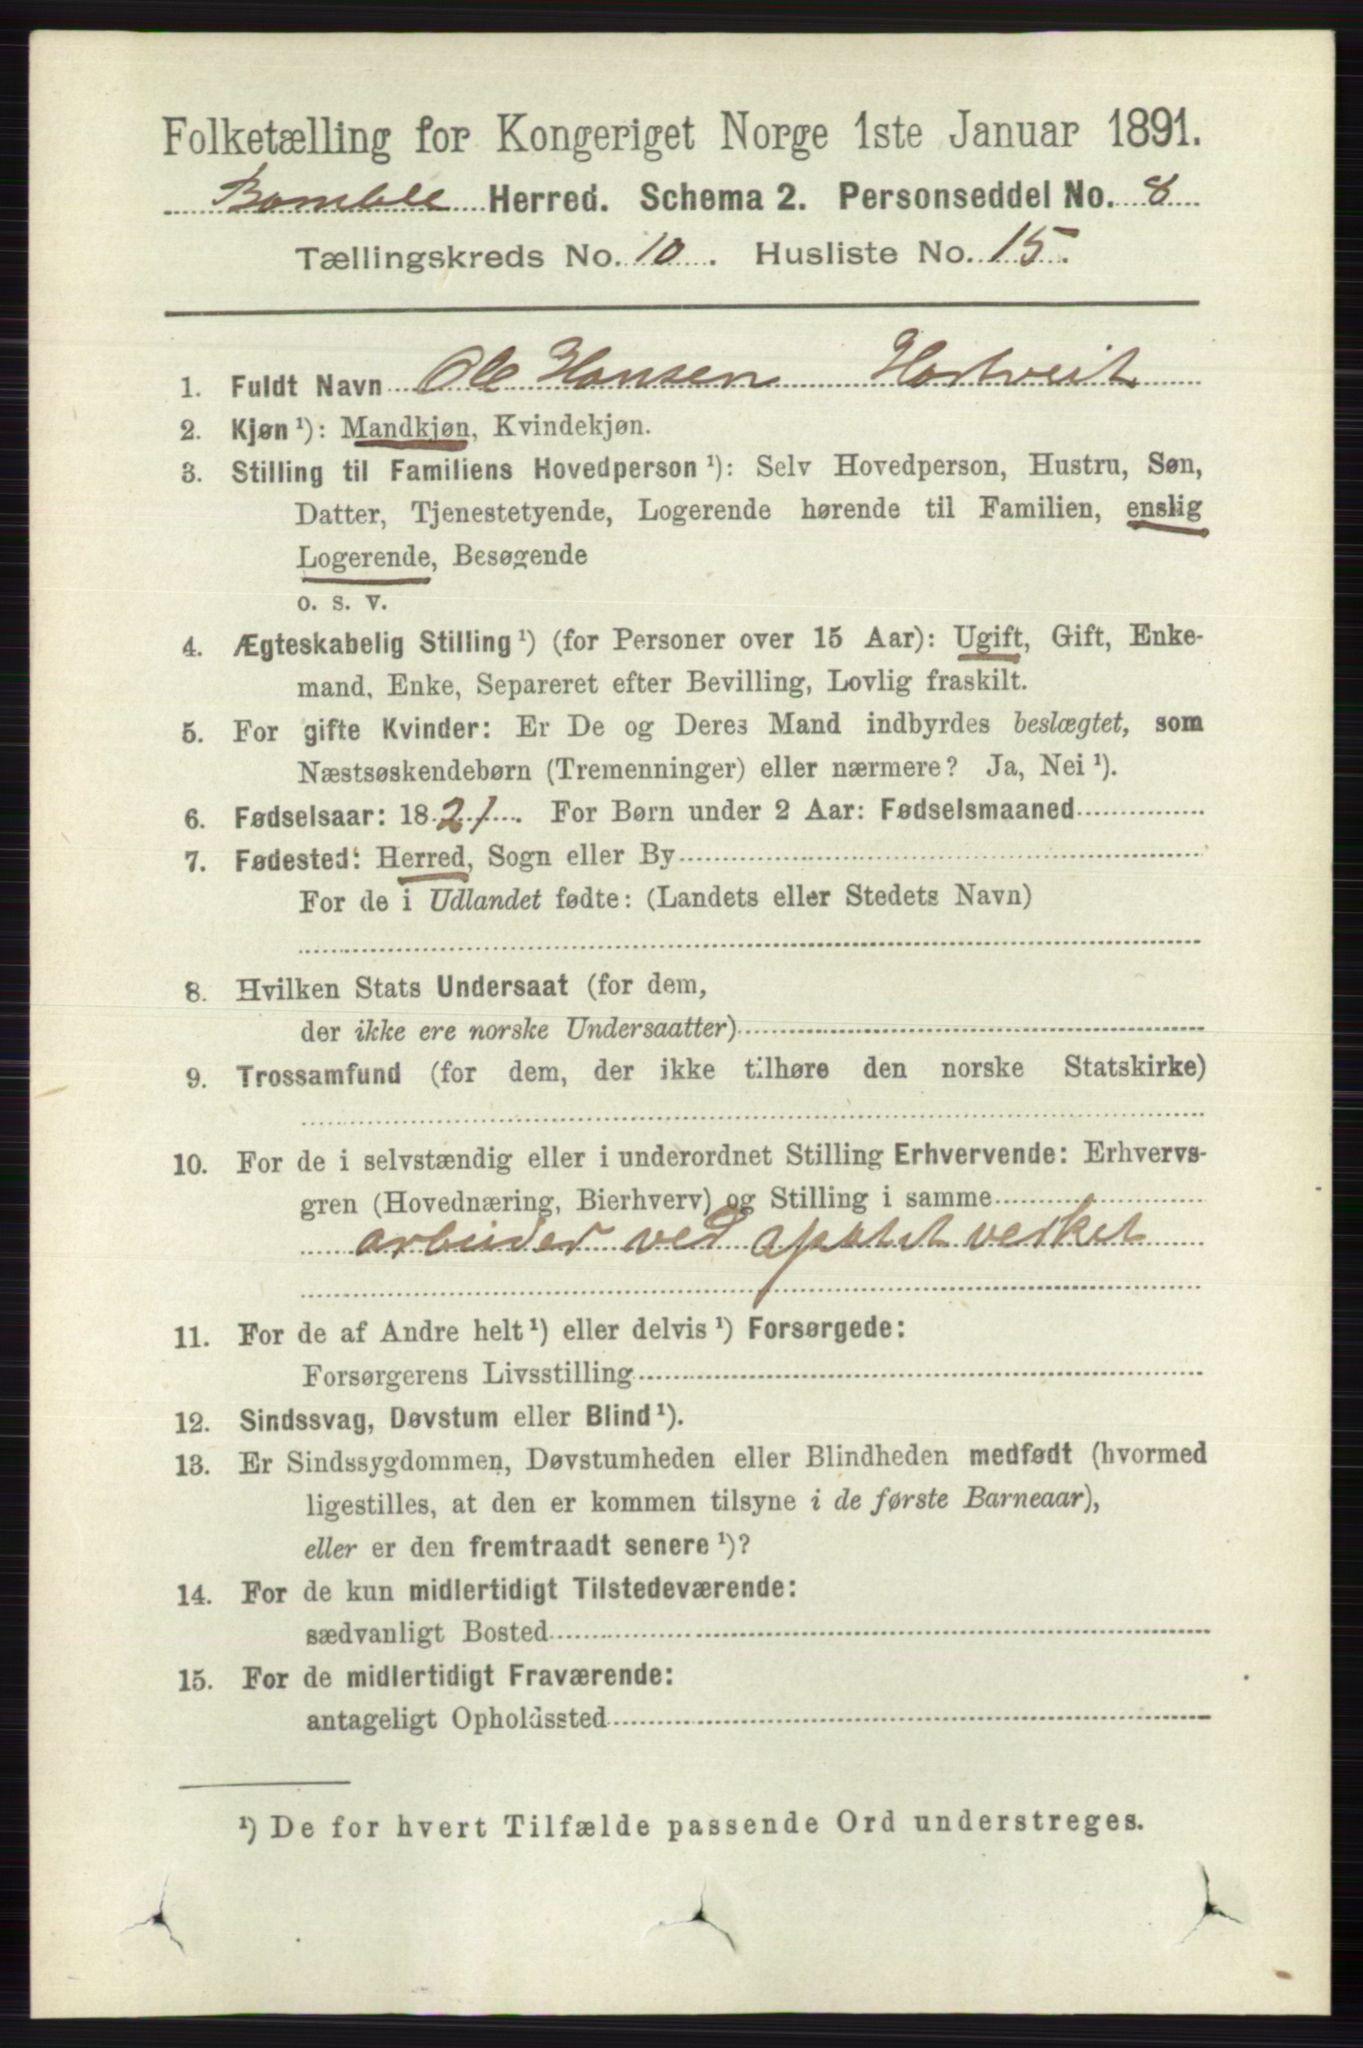 Folketælling for Kongeriget Norge 1ste Januar 1891.
Bamble Herred. Schema 2. Personseddel No. 8
Tællingskreds No. 10. Husliste No. 15.
1. Fuldt Navn Ole Hansen Hortveit
2. Kjøn ¹): Mandkjøn, Kvindekjøn.
3. Stilling til Familiens Hovedperson ¹): Selv Hovedperson, Hustru, Søn,
Datter, Tjenestetyende, Logerende hørende til Familien, enslig
Logerende, Besøgende
o. s. v.
4. Ægteskabelig Stilling ¹) (for Personer over 15 Aar): Ugift, Gift, Enke-
mand, Enke, Separeret efter Bevilling, Lovlig fraskilt.
5. For gifte Kvinder: Er De og Deres Mand indbyrdes beslægtet, som
Næstsøskendebørn (Tremenninger) eller nærmere? Ja, Nei ¹).
6. Fødselsaar: 1821. For Børn under 2 Aar: Fødselsmaaned
7. Fødested: Herred, Sogn eller By
For de i Udlandet fødte: (Landets eller Stedets Navn)
8. Hvilken Stats Undersaat (for dem,
der ikke ere norske Undersaatter)
9. Trossamfund (for dem, der ikke tilhøre den norske Statskirke)
10. For de i selvstændig eller i underordnet Stilling Erhvervende: Erhvervs-
gren (Hovednæring, Bierhverv) og Stilling i samme
arbeider ved apatitverket
11. For de af Andre helt ¹) eller delvis ¹) Forsørgede:
Forsørgerens Livsstilling
12. Sindssvag, Døvstum eller Blind ¹).
13. Er Sindssygdommen, Døvstumheden eller Blindheden medfødt (hvormed
ligestilles, at den er kommen tilsyne i de første Barneaar),
eller er den fremtraadt senere ¹)?
14. For de kun midlertidigt Tilstedeværende:
sædvanligt Bosted
15. For de midlertidigt Fraværende:
antageligt Opholdssted
¹) De for hvert Tilfælde passende Ord understreges.